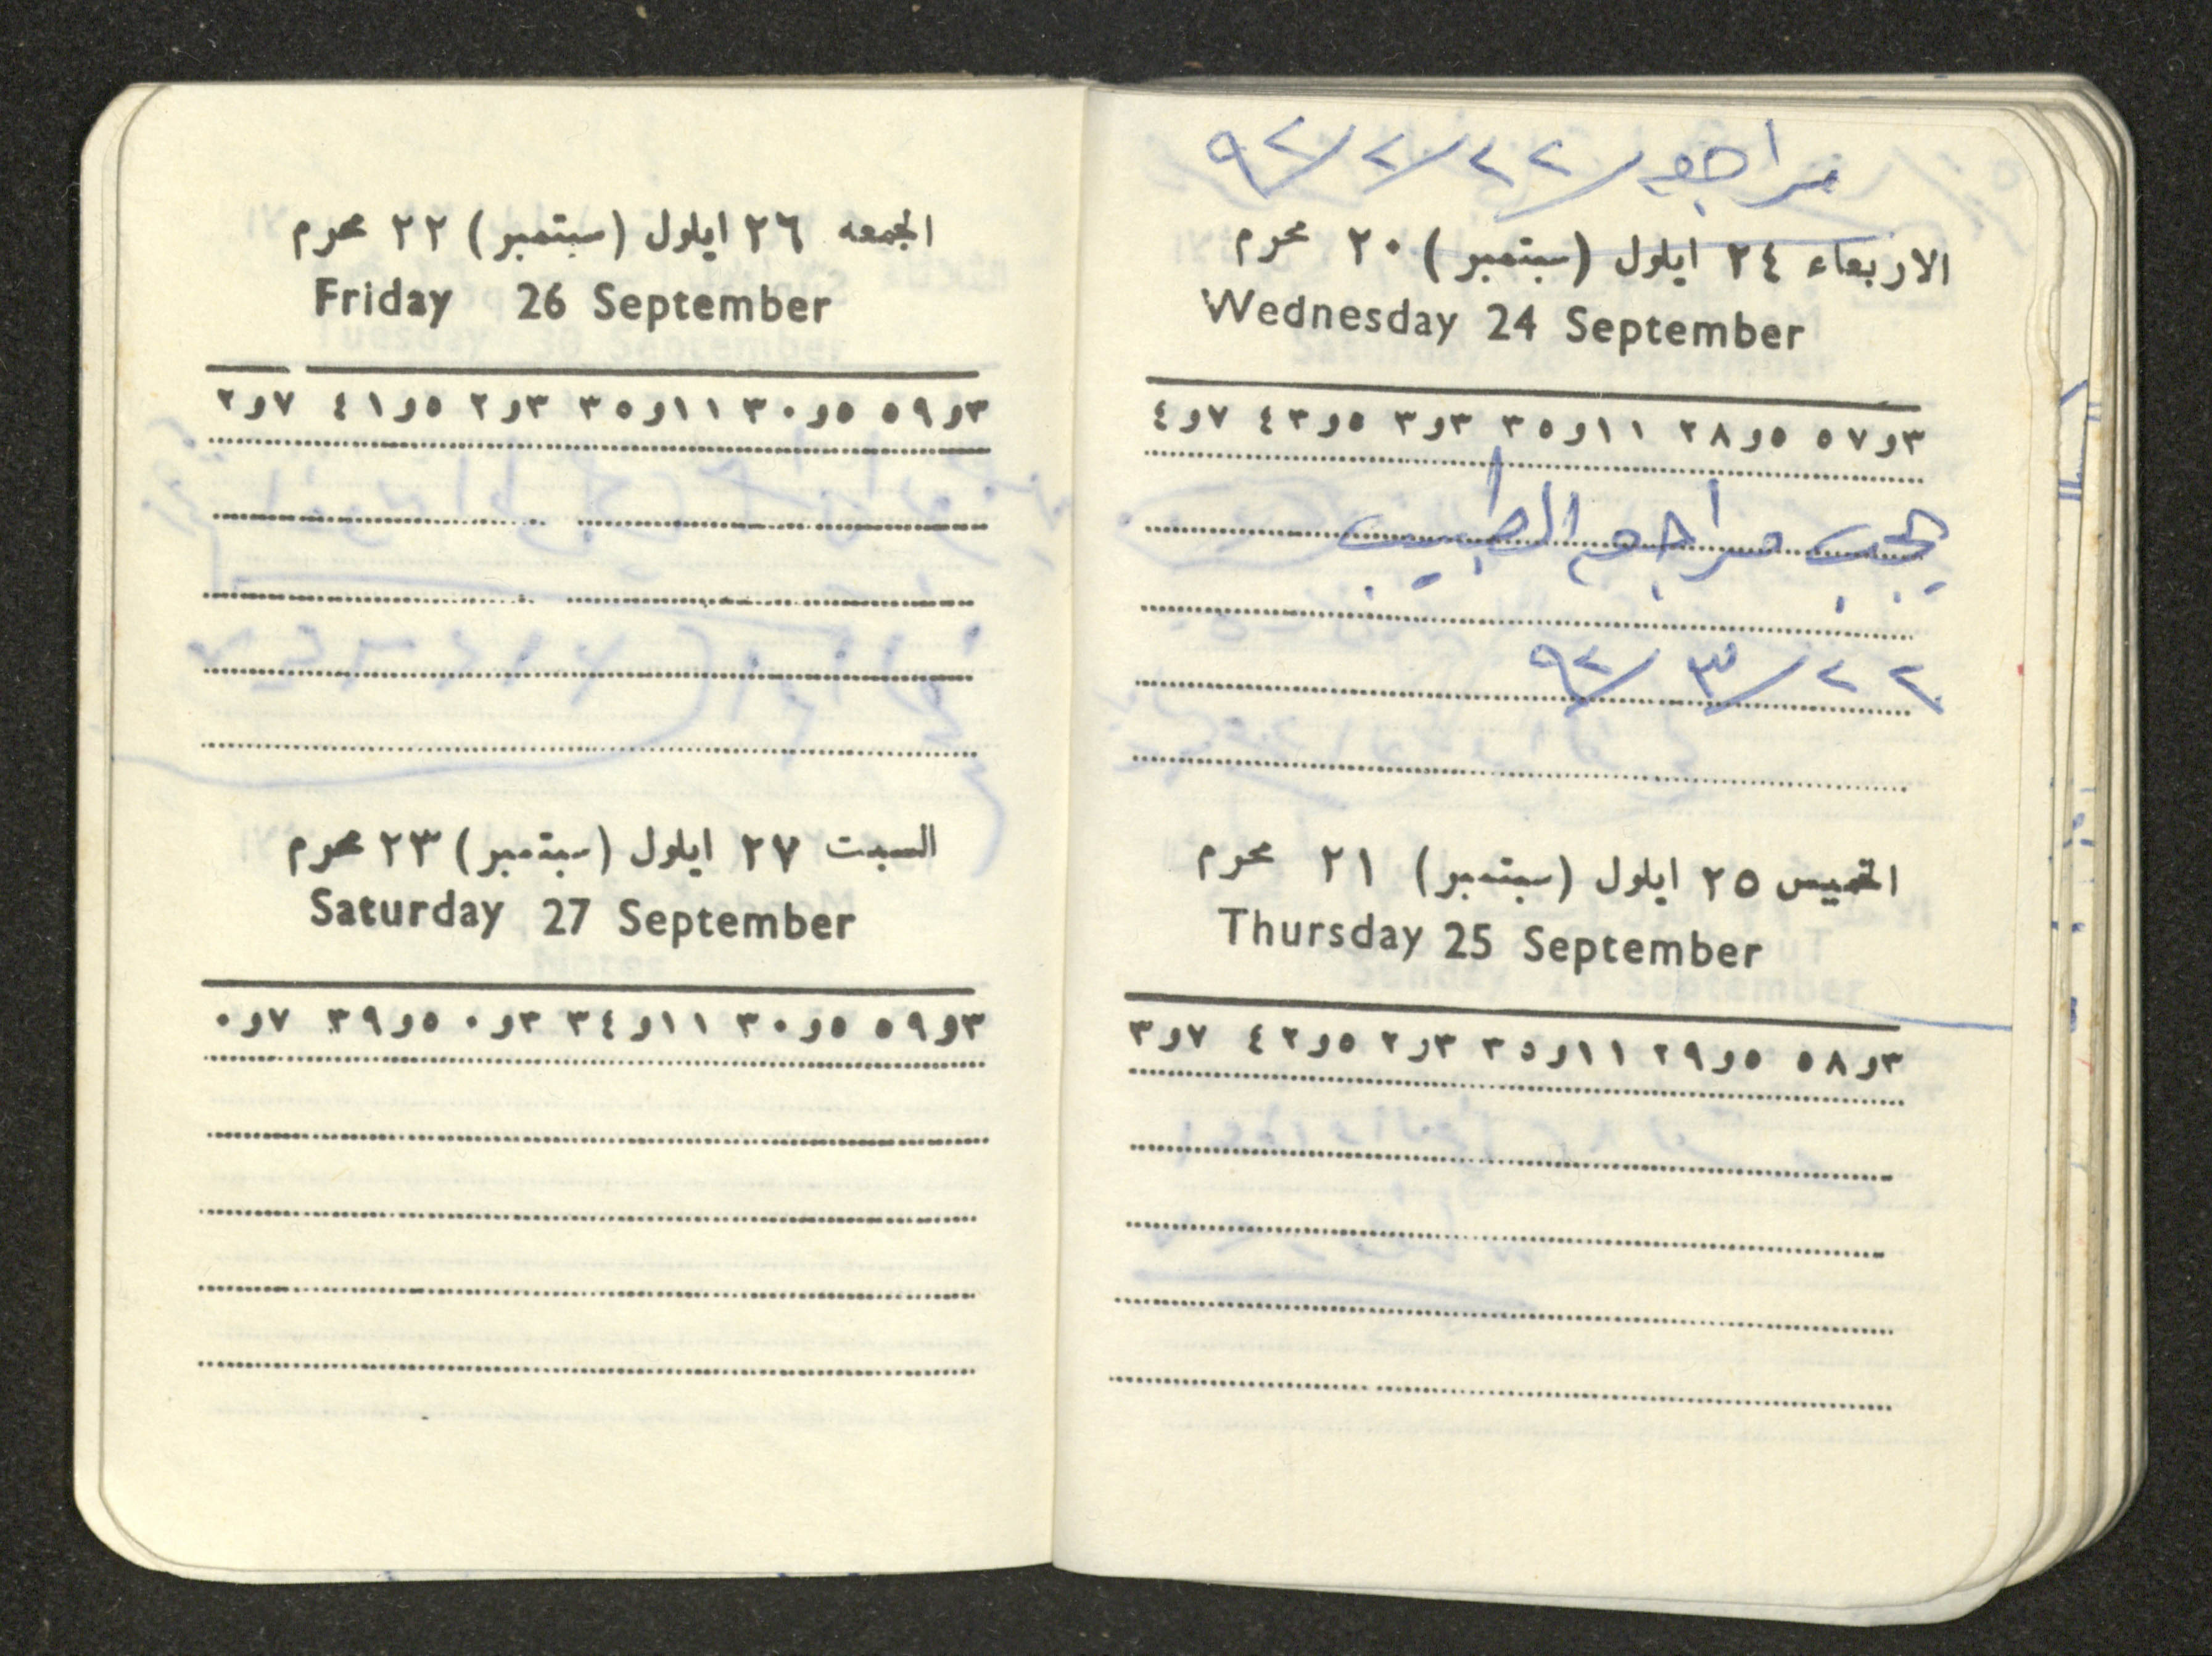 مراجعه ٢٢/٢/٩٢
الاربعاء ٢٤ ايلول (سبتمبر) ٢٠ محرم
Wednesday 24 September
٣و٥٧ ٥و٢٨ ١١و٣٥ ٣و٣ ٥و٤٣ ٧و٤
يجب مراجعه الطبيب
٢٢/٣/٩٢
الخميس ٢٥ ايلول (سبتمبر) ٢١ محرم
Thursday 25 September
٣و٥٨ ٥و٢٩ ١١و٣٥ ٣و٢ ٥و٤٢ ٧و٣
الجمعه ٢٦ ايلول (سبتمبر) ٢٢ محرم
Friday 26 September
٣و٥٩ ٥و٣٠ ١١و٣٥ ٣و٢ ٥و٤١ ٧و٢
السبت ٢٧ ايلول (سبتمبر) ٢٣ محرم
Saturday 27 September
٣و٥٩ ٥و٣٠ ١١و٣٤ ٣و٠ ٥و٣٩ ٧و٠